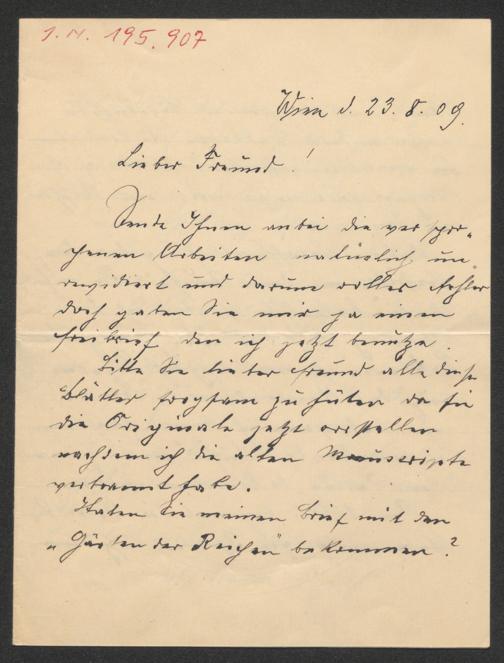 J.N. 195.907
Wien d. 23.8.09.
Lieber Freund!
Sende Ihnen anbei die verspro-
chenen Arbeiten natürlich un-
revidiert und darum voller Fehler
doch gaben Sie mir ja einen
Freibrief den ich jetzt benutze.
Bitte Sie lieber Freund alle diese
Blätter sorgsam zu hüten da sie
die Originale jetzt vorstellen
nachdem ich die alten Manuscripte
verbrannt habe.
Haben Sie meinen Brief mit den
„Gärten der Reichen" bekommen?